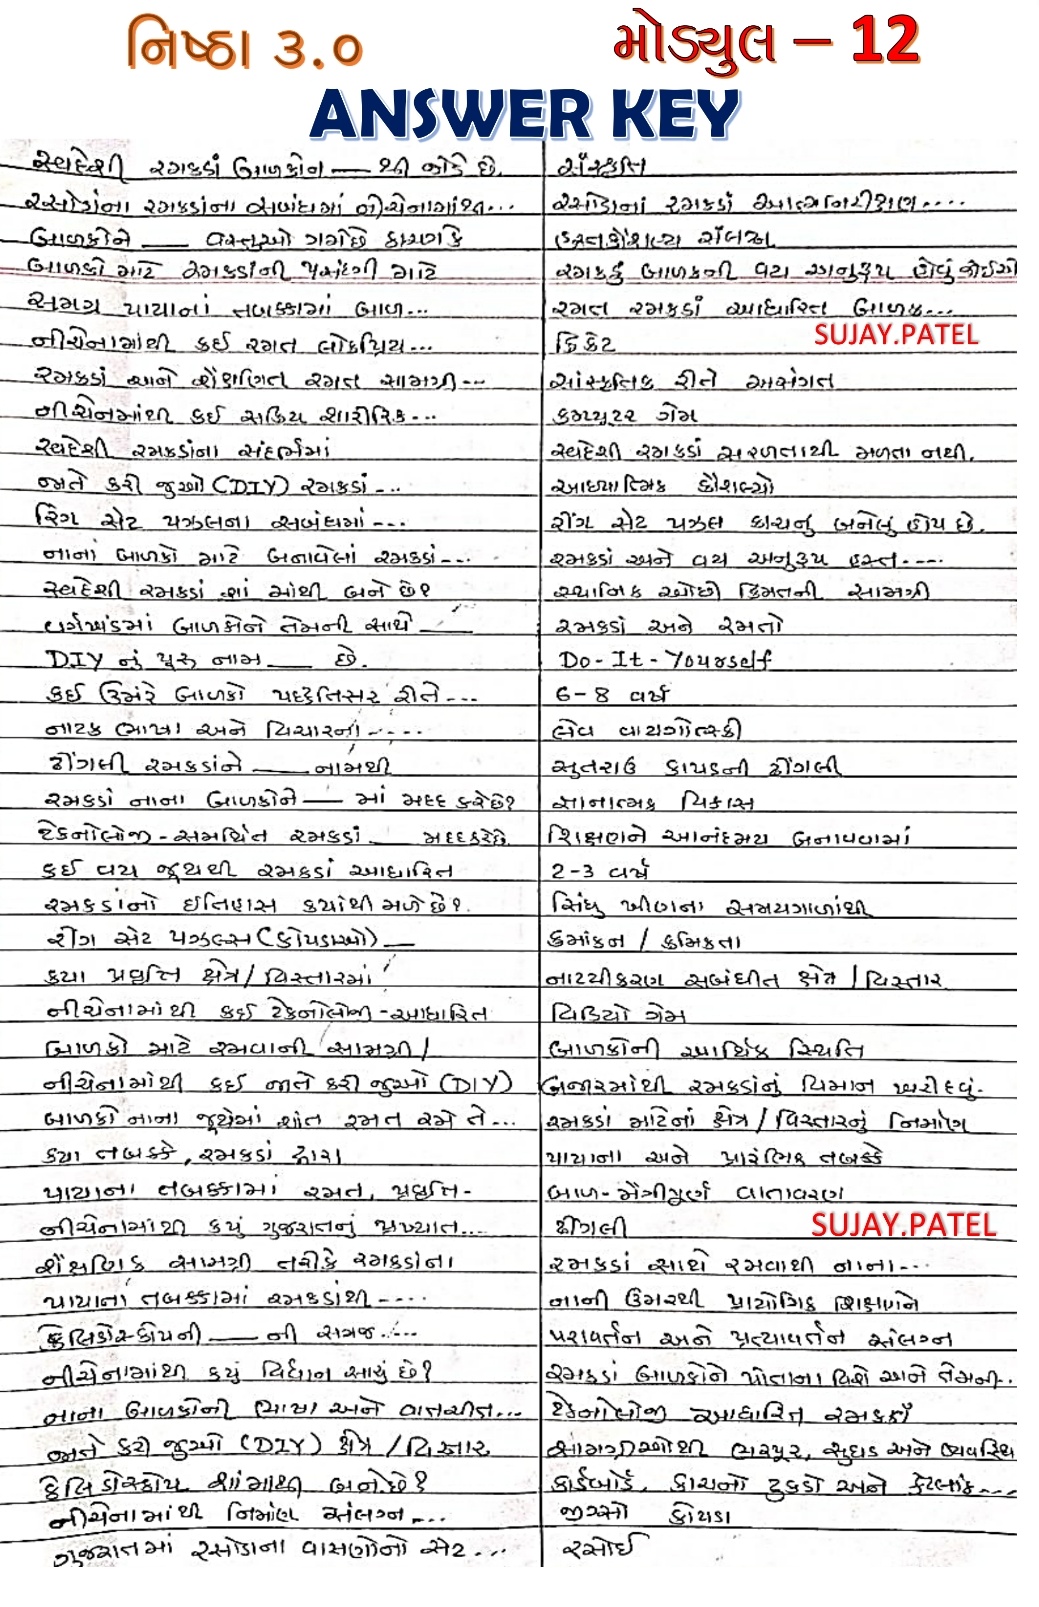 નિષ્ઠા ૩.૦ મોડ્યુલ – 12
ANSWER KEY
સ્વદેશી રમકડાં બાળકોને — થી જોડે છે. સંસ્કૃતિ
રસોડાના રમકડાંના સબંધમાં નીચેનામાંથી... રસોડાનાં રમકડાં આત્મનિરીક્ષણ....
બાળકોને — વસ્તુઓ ગમે છે કારણ કે હસ્તકૌશલ્ય સંલગ્ન
બાળકો માટે રમકડાંની પસંદગી માટે રમકડું બાળકની વય અનુરૂપ હોવું જોઈએ
સમગ્ર પાયાનાં તબક્કામાં બાળ... રમત રમકડાં આધારિત બાળક...
નીચેનામાંથી કઈ રમત લોકપ્રિય... ક્રિકેટ
SUJAY.PATEL
રમકડાં અને શૈક્ષણિત રમત સામગ્રી-- સાંસ્કૃતિક રીતે અસંગત
નીચેનામાંથી કઈ સક્રિય શારીરિક... કમ્પ્યુટર ગેમ
સ્વદેશી રમકડાંના સંદર્ભમાં સ્વદેશી રમકડાં સરળતાથી મળતા નથી.
જાતે કરી જુઓ (DIY) રમકડાં... આધ્યાત્મિક કૌશલ્યો
રિંગ સેટ પઝલના સબંધમાં--- રીંગ સેટ પઝલ કાચનું બનેલું હોય છે.
નાનાં બાળકો માટે બનાવેલાં રમકડાં... રમકડાં અને વય અનુરૂપ હસ્ત....
સ્વદેશી રમકડાં શાં માંથી બને છે? સ્થાનિક ઓછી કિંમતની સામગ્રી
વર્ગખંડમાં બાળકોને તેમની સાથે — રમકડાં અને રમતો
DIY નું પૂરું નામ — છે. Do-It-Yourself
કઈ ઉંમરે બાળકો પધ્ધતિસર રીતે... 6-8 વર્ષ
નાટક ભાષા અને વિચારના..... લેવ વાયગોત્સ્કી
ઢીંગલી રમકડાંને — નામથી સુતરાઉ કાપડની ઢીંગલી
રમકડાં નાના બાળકોને — માં મદદ કરે છે? જ્ઞાનાત્મક વિકાસ
ટેકનોલોજી-સમર્થિત રમકડાં — મદદ કરે છે. શિક્ષણને આનંદમય બનાવવામાં
કઈ વય જૂથથી રમકડાં આધારિત 2-3 વર્ષ
રમકડાંનો ઈતિહાસ ક્યાંથી મળે છે? સિંધુ ખીણના સમયગાળાથી
રીંગ સેટ પઝલ્સ (કોયડાઓ) — ક્રમાંકન / ક્રમિકતા
કયા પ્રવૃત્તિ ક્ષેત્ર / વિસ્તારમાં નાટ્યીકરણ સબંધીત ક્ષેત્ર / વિસ્તાર
નીચેનામાંથી કઈ ટેકનોલોજી-આધારિત વિડિયો ગેમ
બાળકો માટે રમવાની સામગ્રી / બાળકોની આર્થિક સ્થિતિ
નીચેનામાંથી કઈ જાતે કરી જુઓ (DIY) બજારમાંથી રમકડાંનું વિમાન ખરીદવું.
બાળકો નાના જૂથમાં શાંત રમત રમે તે... રમકડાં માટેનાં ક્ષેત્ર / વિસ્તારનું નિર્માણ
કયા તબક્કે, રમકડાં દ્વારા પાયાના અને પ્રારંભિક તબક્કે
પાયાના તબક્કામાં રમત, પ્રવૃત્તિ- બાળ-મૈત્રીપૂર્ણ વાતાવરણ
નીચેનામાંથી કયું ગુજરાતનું પ્રખ્યાત.... ઢીંગલી
SUJAY.PATEL
શૈક્ષણિક સામગ્રી તરીકે રમકડાંના રમકડાં સાથે રમવાથી નાના...
પાયાના તબક્કામાં રમકડાંથી-.... નાની ઉંમરથી પ્રાયોગિક શિક્ષણને
કેલિડોસ્કોપની — ની સમજ.... પરાવર્તન અને પ્રત્યાવર્તન સંલગ્ન
નીચેનામાંથી કયું વિધાન સાચું છે? રમકડાં બાળકોને પોતાના વિશે અને તેમની..
નાના બાળકોની ભાષા અને વાતચીત... ટેકનોલોજી આધારિત રમકડાં
જાતે કરી જુઓ (DIY) ક્ષેત્ર / વિસ્તાર સામગ્રીઓથી ભરપૂર, સુઘડ અને વ્યવસ્થિ
કેલિડોસ્કોપ શાંમાથી બને છે? કાર્ડબોર્ડ, કાચનો ટુકડો અને કેટલાંક...
નીચેનામાંથી નિર્માણ સંલગ્ન... જીગ્સો કોયડા
ગુજરાતમાં રસોડાના વાસણોનો સેટ... રસોઈ